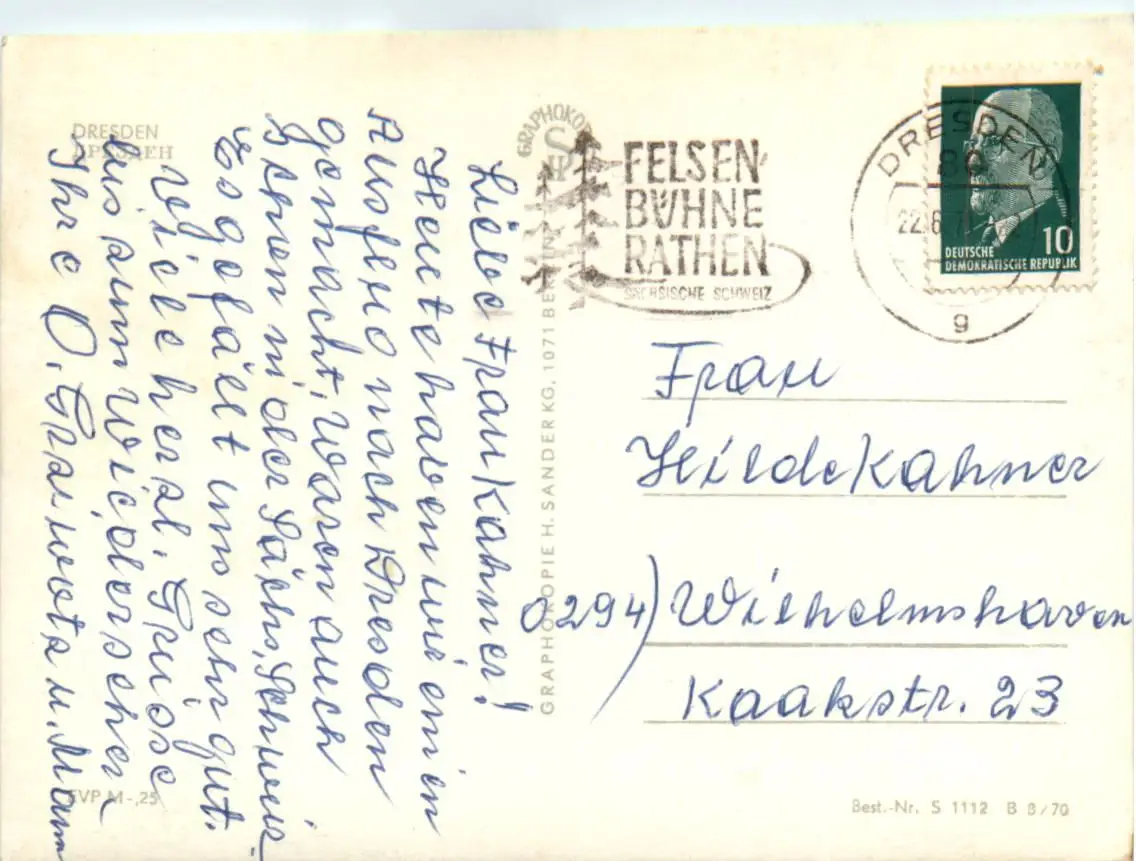 DRESDEN
ДРЕЗДЕН
Liebe Frau Kahner!
Heute haben wir einen
Ausflug nach Dresden
gemacht, waren auch
schon in der Sächs. Schweiz
Es gefällt uns sehr gut.
Viele herzl. Grüsse
bis zum Wiedersehen
Ihre O. u. Mann
EVP M -,25
GRAPHOKOPIE H. SANDER KG, 1071 BERLIN
FELSEN
BÜHNE
RATHEN
SÄCHSISCHE SCHWEIZ
DRESDEN
80
g
DEUTSCHE
DEMOKRATISCHE REPUBLIK
10
Frau
Hilde Kahner
0294) Wilhelmshaven
Kaakstr. 23
Best.-Nr. S 1112 B 8/70